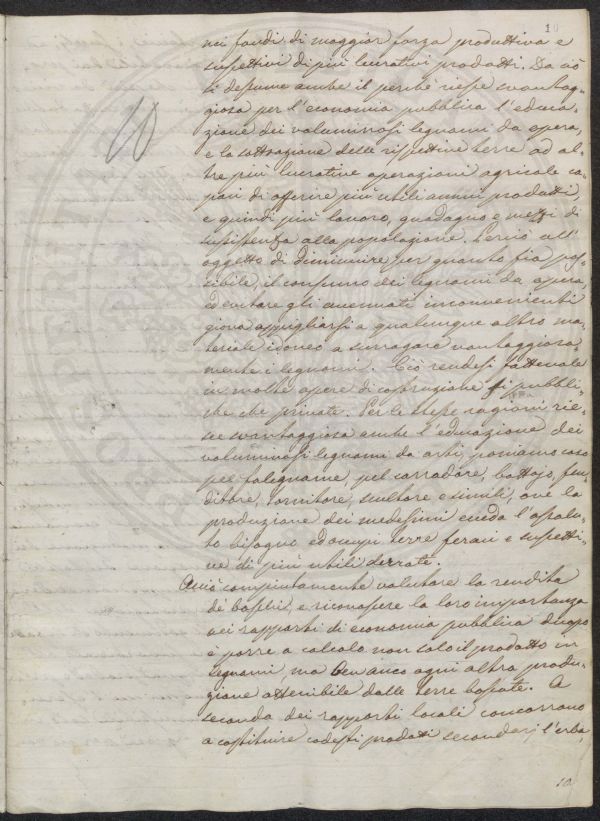 10
nei fondi di maggior forza produttiva e
suscettivi di più lucrativi prodotti. Da ciò
si desume anche il perchè riesce svantag-
giosa per l'economia pubblica l'educa-
zione dei voluminosi legnami da opera,
e la sottrazione delle rispettive terre ad al-
tre più lucrative operazioni agricole ca-
paci di offerire più utili annui prodotti,
e quindi più lavoro, guadagno e mezzi di
sussistenza alla popolazione. Perciò all'
oggetto di diminuire per quanto fia pos-
sibile, il consumo dei legnami da opera,
ed evitare gli accennati inconvenienti
giova appigliarsi a qualunque altro ma-
teriale idoneo a surrogare vantaggiosa-
mente i legnami. Ciò rendesi fattevole
in molte opere di costruzione sì pubbli-
che che private. Per le stesse ragioni rie-
sce svantaggiosa anche l'educazione dei
voluminosi legnami da arti, poniamo caso
pel falegname, pel carradore, bottajo, fen-
ditore, tornitore, scultore e simili, ove la
produzione dei medesimi ecceda l'assolu-
to bisogno ed occupi terre feraci e suscetti-
ve di più utili derrate.
Acciò compiutamente valutare la rendita
de' boschi, e riconoscere la loro importanza
nei rapporti di economia pubblica d'uopo
è porre a calcolo non solo il prodotto in
legnami, ma ben anco ogni altra produ-
zione ottenibile dalle terre boscate. A
seconda dei rapporti locali concorrono
a costituire codesti prodotti secondarj l'erba,
10
10
PROSPERITA